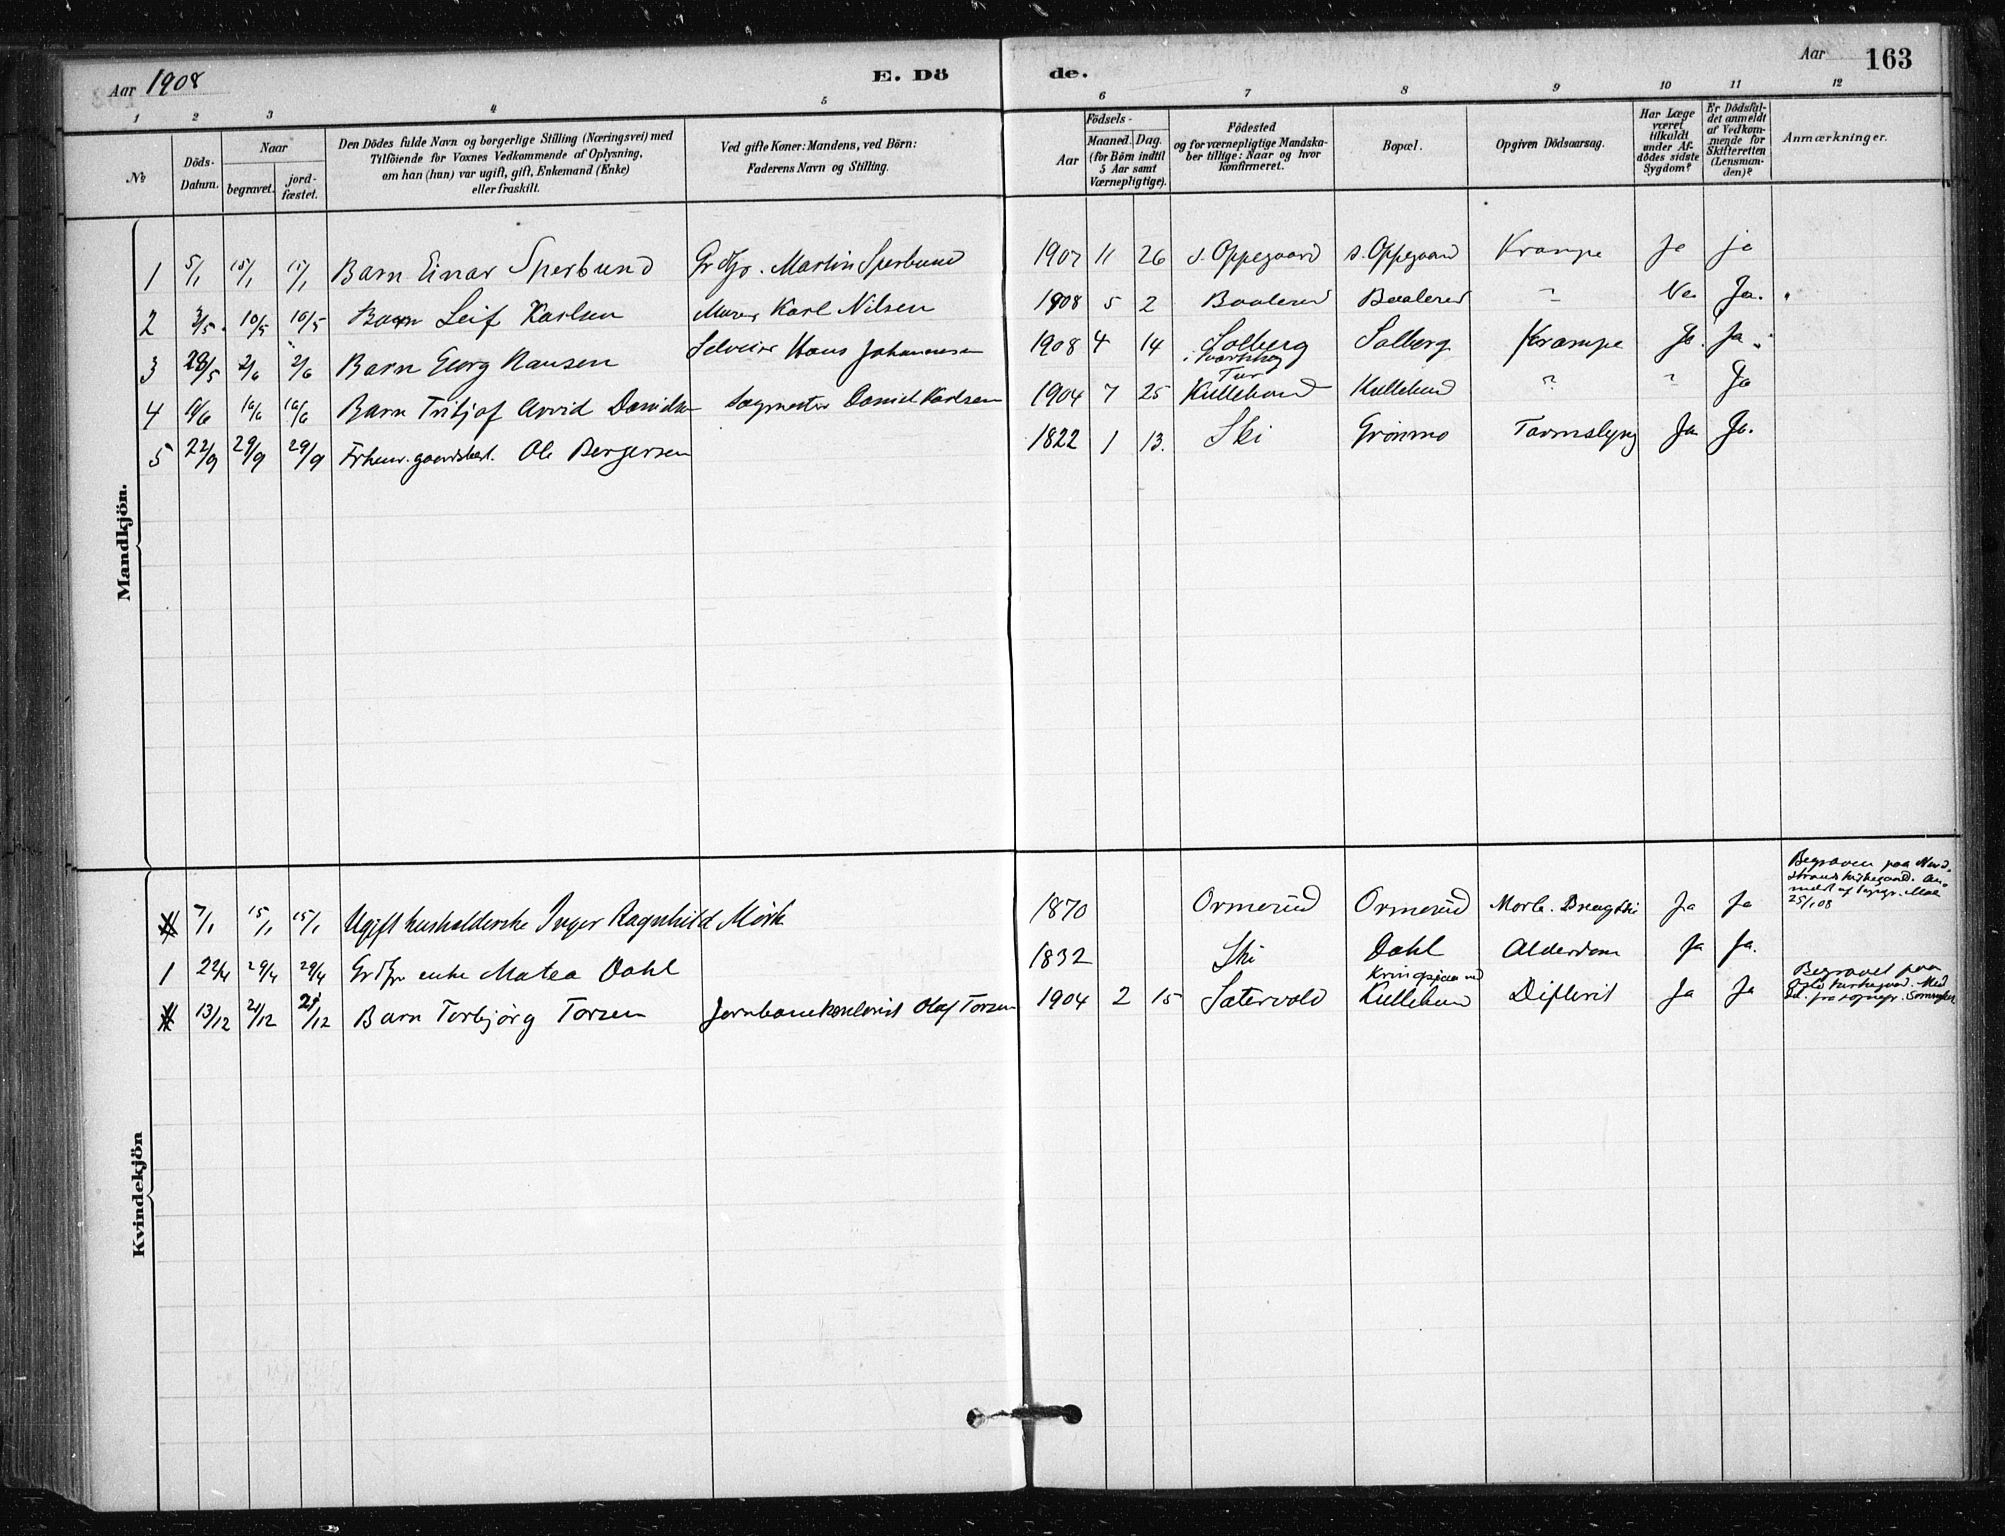 Aar 1908
E. Dö
de.
Aar
163
1 2 3 4 5 6 7 8 9 10 11 12
No
Döds-
Datum.
Naar
begravet.
jord-
fæstet.
Den Dödes fulde Navn og borgerlige Stilling (Næringsvei) med
Tilföiende for Voxnes Vedkommende af Oplysning,
om han (hun) var ugift, gift, Enkemand (Enke)
eller fraskilt.
Ved gifte Koner: Mandens, ved Börn:
Faderens Navn og Stilling.
Födsels-
Aar
Maaned.
Dag.
(for Börn indtil
5 Aar samt
Værnepligtige).
Födested
og for værnepligtige Mandska-
ber tillige: Naar og hvor
konfirmeret.
Bopæl.
Opgiven Dödsaarsag.
Har Læge
været
tilkaldt
under Af-
dödes sidste
Sygdom?
Er Dödsfal-
det anmeldt
af Vedkom-
mende for
Skifteretten
(Lensman-
den)?
Anmærkninger.
Mandkjön.
1 5/1 15/1 15/1 Barn Einar Sperbund Martin Sperbund 1907 11 26 s. Oppegaard s. Oppegaard Krampe Ja ja
2 3/5 10/5 10/5 Barn Leif Karlsen Murer Karl Nilsen 1908 5 2 Baalerud Baalerud - Nei Ja.
3 28/5 2/6 2/6 Barn Georg Hansen Selveier Hans Johannesen 1908 4 14 Solberg Solberg Krampe Ja. Ja
4 16/6 16/6 Barn Tritjof Arvid Davidsen Sagmester David Karlsen 1904 7 25 Kullebund Kullebund ? " Ja
5 22/9 29/9 29/9 Ole Bergersen 1822 1 13. Ski Grönmo Tarmslyng Ja Ja.
Kvindekjön
7/1 15/1 15/1 Ugift husholderske Inger Ragnhild Mörk 1870 Ormerud Ormerud Morb. Brightii Ja Ja
Begraven paa Nord-
strand kirkegaard. An-
meldt af sogpr.
25/1 08
1 22/4 29/4 29/4 enke Matea Dahl 1832 Ski Dahl Alderdom Ja Ja.
13/12 21/12 21/12 Barn Torbjörg Torsen Olaf Torsen 1904 2 15 Sætervold
Kullebund Difterit Ja Ja
Begravet paa
kirkegaard. Med
fra sognepr.